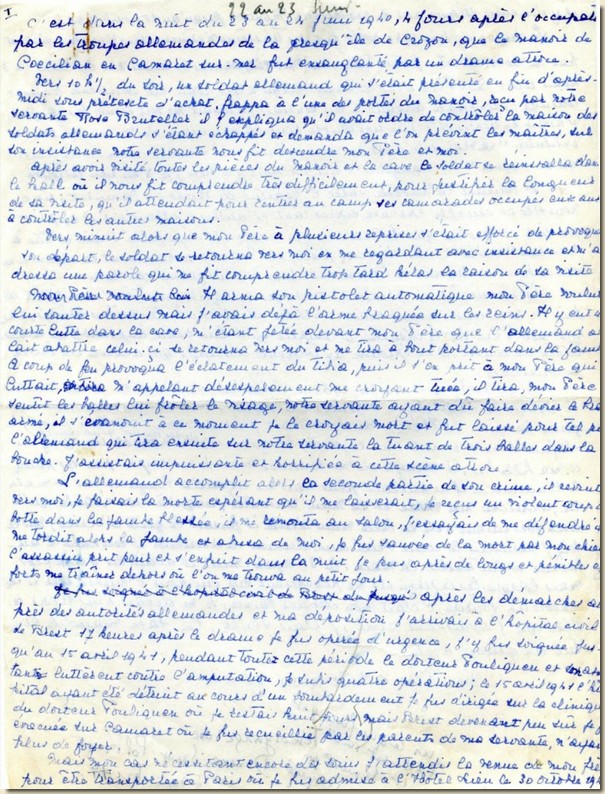 I
22 au 23 Juin
C'est dans la nuit du 23 au 24 Juin 1940, 4 jours après l'occupat
par les troupes allemandes de la presqu'île de Crozon, que le Manoir de
Coecilian en Camaret sur-Mer fut ensanglanté par un drame atroce.
Vers 10 h ½ du soir, un soldat allemand qui s'était présenté en fin d'après-
midi sous prétexte d'achat, frappa à l'une des portes du Manoir, reçu par notre
servante Rose Bruteller il expliqua qu'il avait ordre de contrôler la maison des
soldats allemands s'étant échappés et demanda que l'on prévint les maîtres, sur
son insistance notre servante nous fit descendre mon Père et moi.
Après avoir visité toutes les pièces du Manoir et la cave le soldat se réinstalla dan
le hall où il nous fit comprendre très difficilement, pour justifier la longueur
de sa visite, qu'il attendait pour rentrer au camp ses camarades occupés eux aus
à contrôler les autres maisons.
Vers minuit alors que mon Père à plusieurs reprises s'était efforcé de provoque
son départ, le soldat se retourna vers moi en me regardant avec insistance et m'a
dressa une parole qui me fit comprendre trop tard hélas la raison de sa visite
Mon Père voulut lui Il arma son pistolet automatique mon Père voulut
lui sauter dessus mais j'avais déjà l'arme braquée sur les reins. Il y eut u
courte lutte dans la cave, m'étant jetée devant mon Père que l'allemand a
lait abattre celui-ci se retourna vers moi et me tira à bout portant dans la jam
le coup de feu provoqua l'éclatement du tibia, puis il s'en prit à mon Père qui
luttait, m'appelant désespérément me croyant tuée, il tira, mon Père
sentit les balles lui frôler le visage, notre servante ayant dû faire dévier le bra
armé, il s'évanouit à ce moment je le croyais mort et fut laissé pour tel pa
l'allemand qui tira ensuite sur notre servante la tuant de trois balles dans la
bouche. J'assistais impuissante et horrifiée à cette scène atroce.
L'allemand accomplit alors la seconde partie de son crime, il revint
vers moi, je faisais la morte espérant qu'il me laisserait, je reçus un violent coup d
botte dans la jambe blessée, il me remonta au salon, j'essayais de me défendre i
me tordit alors la jambe et abusa de moi, je fus sauvée de la mort par mon chien
l'assassin prit peur et s'enfuit dans la nuit je pus après de longs et pénibles e
forts me traîner dehors où l'on me trouva au petit jour.
Je fus soignée à l'hôpital civil de Brest jusqu' après les démarches au
près des autorités allemandes et ma déposition j'arrivais à l'hôpital civil
de Brest 17 heures après le drame je fus opérée d'urgence, j'y fus soignée jus
qu'au 15 avril 1941, pendant toute cette période le docteur Pouliquen et son as
tant luttèrent contre l'amputation, je subis quatre opérations; le 15 avril 1941 l'hô
pital ayant été détruit au cours d'un bombardement je fus dirigée sur la clinique
du docteur Pouliquen où je restais huit jours, mais Brest devenant peu sûr je fus
évacuée sur Camaret où je fus recueillie par les parents de ma servante, n'ayan
plus de foyer.
Mais mon cas nécessitant encore des soins j'attendis la venue de mon frè
pour être transportée à Paris où je fus admise à l'Hôtel Dieu le 30 octobre 194